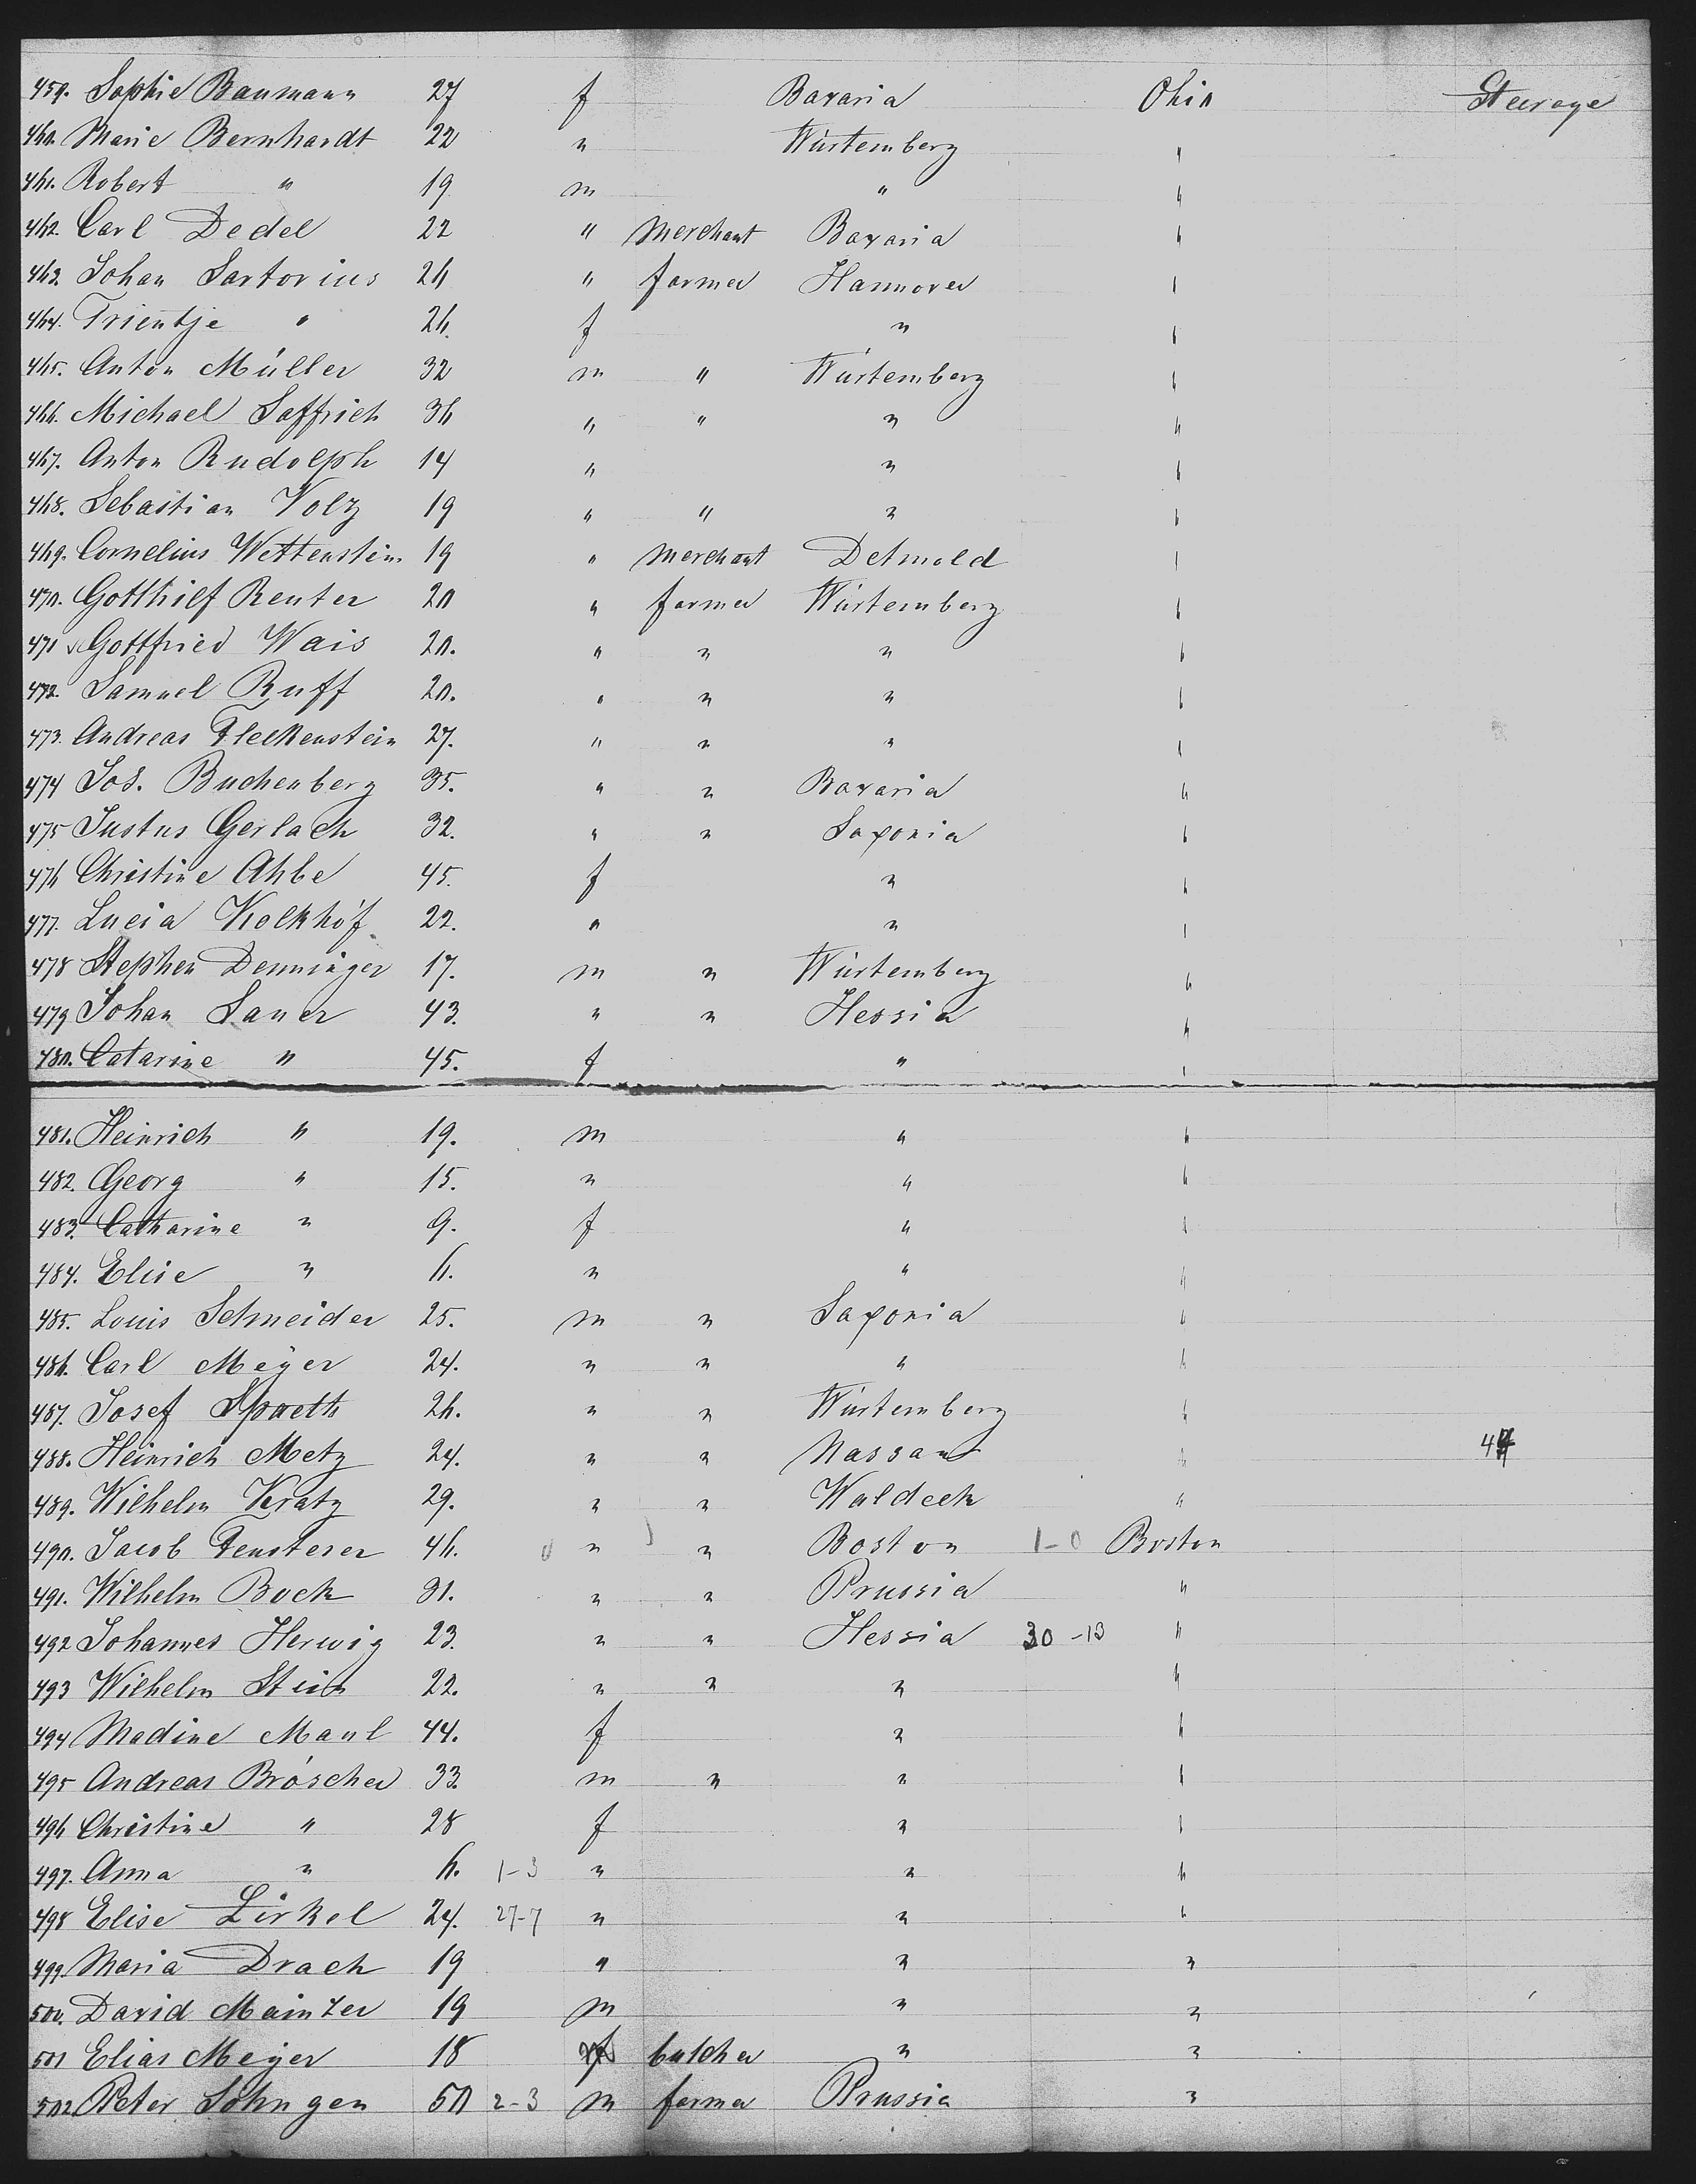 459. Sophie Baumann 27 f Bavaria Ohio Steerage
460. Marie Bernhardt 22 " Würtemberg "
461. Robert " 19 m " "
462. Carl Dedel 22 " Merchant Bavaria "
463. Johan Sartorius 26 " farmer Hannover "
464. Trientje " 26. f " "
465. Anton Müller 32 m " Würtemberg "
466. Michael Saffrich 36 " " " "
467. Anton Rudolph 14 " " "
468. Sebastian Volz 19 " " " "
469. Cornelius Wettenstein 19 " Merchant Detmold "
470. Gotthilf Reuter 20 " farmer Würtemberg "
471 Gottfried Wais 20. " " " "
472. Samuel Ruff 20. " " " "
473. Andreas Fleckenstein 27. " " " "
474 Jos. Buchenberg 35. " " Bavaria "
475 Justus Gerlach 32. " " Saxonia "
476 Christine Ahbe 45. f " "
477. Lucia Kolkhöf 22. " " "
478 Stephen Denninger 17. m " Würtemberg "
479 Johan Lauer 43. " " Hessia "
480. Catarine " 45. f " "
481. Heinrich " 19. m " "
482. Georg " 15. " " "
483. Catharine " 9. f " "
484. Elise " 6. " " "
485. Louis Schneider 25. m " Saxonia "
486. Carl Meyer 24. " " " "
487. Josef Spaeth 26. " " Würtemberg "
488. Heinrich Metz 24. " " Nassau " 44
489. Wilhelm Kratz 29. " " Waldeck "
490. Jacob Fensterer 46. " " Boston 1-0 Boston
491. Wilhelm Bock 31. " " Prussia "
492 Johannes Herwig 23. " " Hessia 30-13 "
493 Wilhelm Stein 22. " " " "
494 Madine Maul 44. f " "
495 Andreas Bröscher 33. m " " "
496 Christine " 28 f " "
497. Anna " 6. 1-3 " " "
498 Elise Lirkel 24. 27-7 " " "
499. Maria Drach 19 " " "
500. David Mainzer 19 m " "
501 Elias Meyer 18 butcher " "
502. Peter Sohngen 50 2-3 m farmer Prussia "